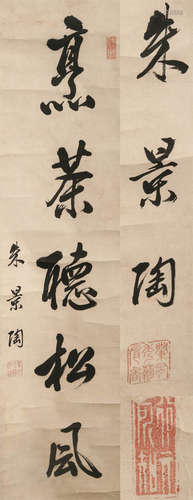 朱景陶
烹茶聽松風
朱景陶